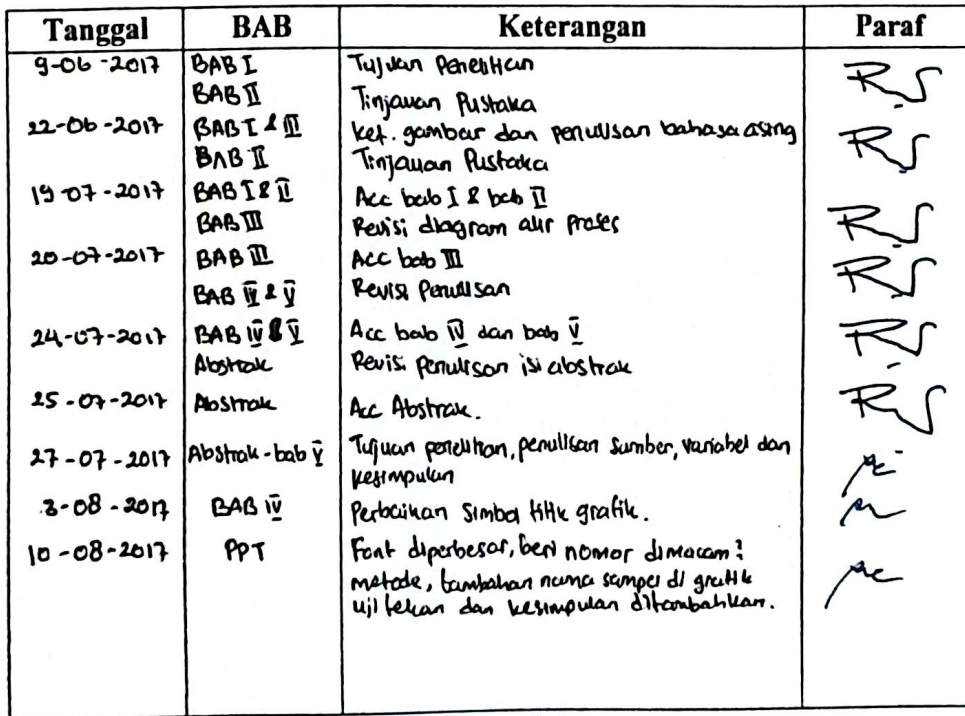 Tanggal BAB Keterangan Paraf
9-06-2017 BAB I Tujuan Penelitian RS
BAB II Tinjauan Pustaka
22-06-2017 BAB I & III Ket. gambar dan penulisan bahasa asing RS
BAB II Tinjauan Pustaka
19-07-2017 BAB I & II Acc bab I & bab II
BAB III Revisi diagram alir proses RS
20-07-2017 BAB III Acc bab III RS
BAB IV & V Revisi Penulisan
24-07-2017 BAB IV & V Acc bab IV dan bab V RS
Abstrak Revisi penulisan isi abstrak
25-07-2017 Abstrak Acc Abstrak. RS
27-07-2017 Abstrak-bab V Tujuan penelitian, penulisan sumber, variabel dan
kesimpulan
3-08-2017 BAB IV Perbaikan Simbol titik grafik.
10-08-2017 PPT Font diperbesar, beri nomor dimacam²
metode, tambahan nama sampel di grafik
uji tekan dan kesimpulan ditambahkan.